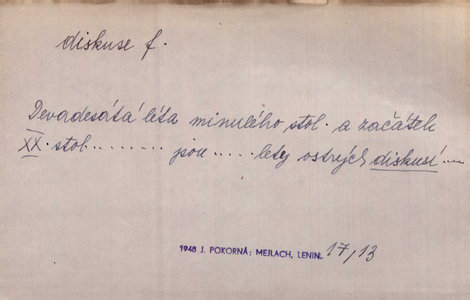 diskuse f.
Devadesátá léta minulého stol. a začátek
XX. stol........ jsou..... lety ostrých diskusí....
1948 J. POKORNÁ: MEJLACH, LENIN. 17/13